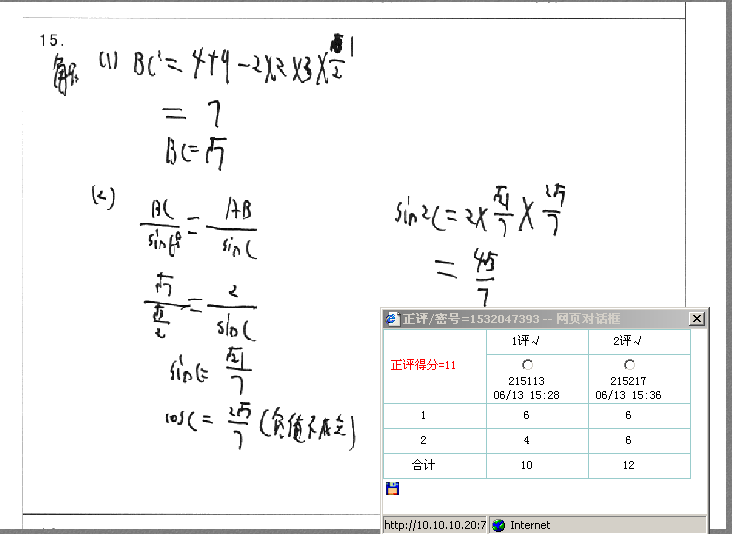 15.
解 (1) BC²=4+9-2×2×3×1/2
= 7
BC=√7
(2)
BC/sin60° = AB/sinC
√7/(√3/2) = 2/sinC
sinC=√21/7
cosC=2√7/7 (负值不成立)
sin2C=2×√21/7×2√7/7
= 4√3/7
正评/密号=1532047393 -- 网页对话框
正评得分=11
1评√ 2评√
215113 215217
06/13 15:28 06/13 15:36
1 6 6
2 4 6
合计 10 12
http://10.10.10.20:7 Internet